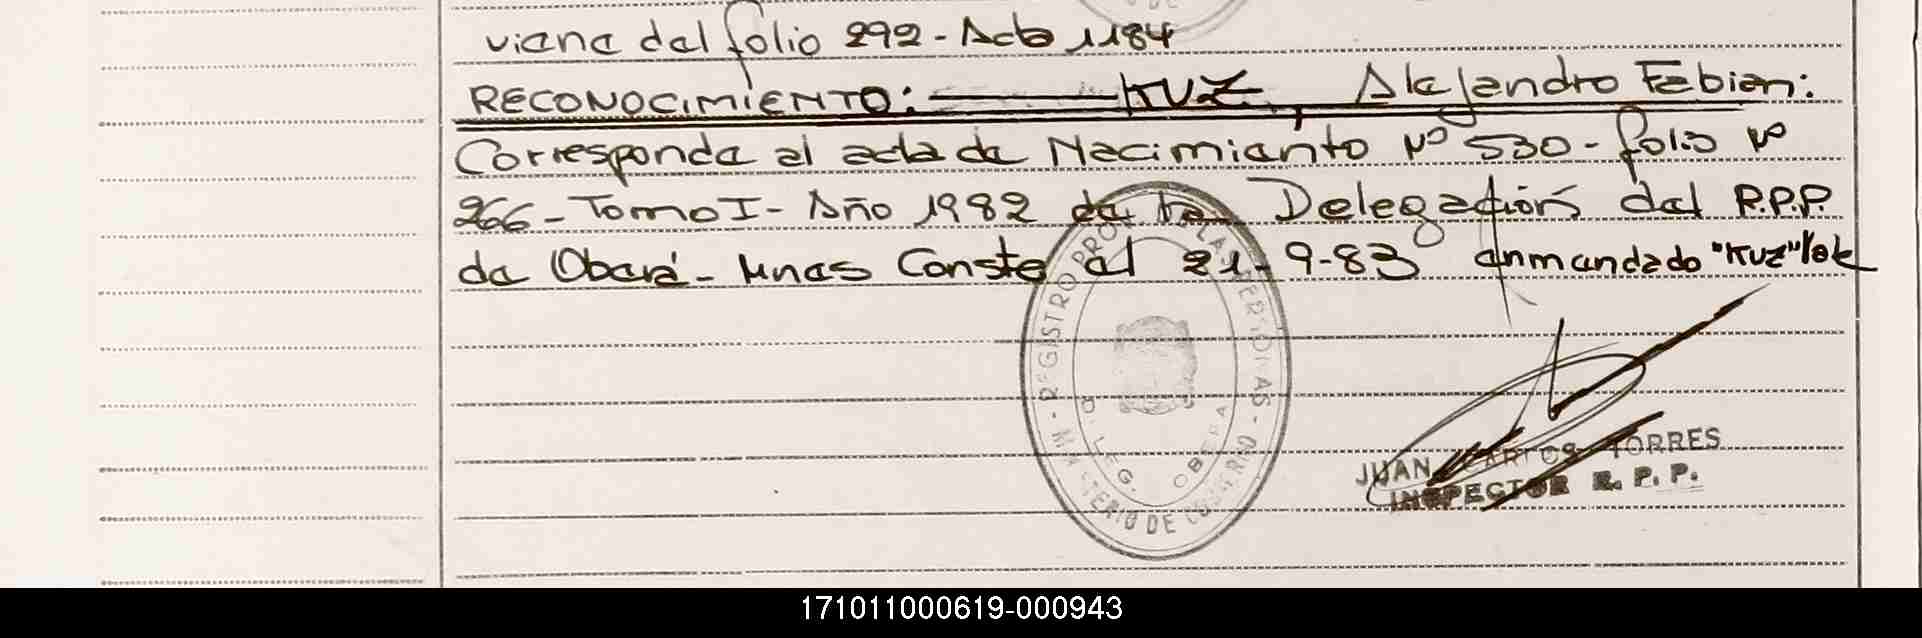 viene del folio 292 - Acta 1184
RECONOCIMIENTO: KUZ, Alejandro Fabian:
Corresponde al acta de Nacimiento Nº 530 - folio Nº
266 - Tomo I - Año 1982 de la Delegación del R.P.P.
de Oberá - Mnes Conste al 21-9-83 enmendado "KUZ" Vale
REGISTRO PROV. DE LAS PERSONAS - MINISTERIO DE GOBIERNO -
DELEG. OBERA
JUAN CARLOS TORRES
INSPECTOR R. P. P.
171011000619-000943